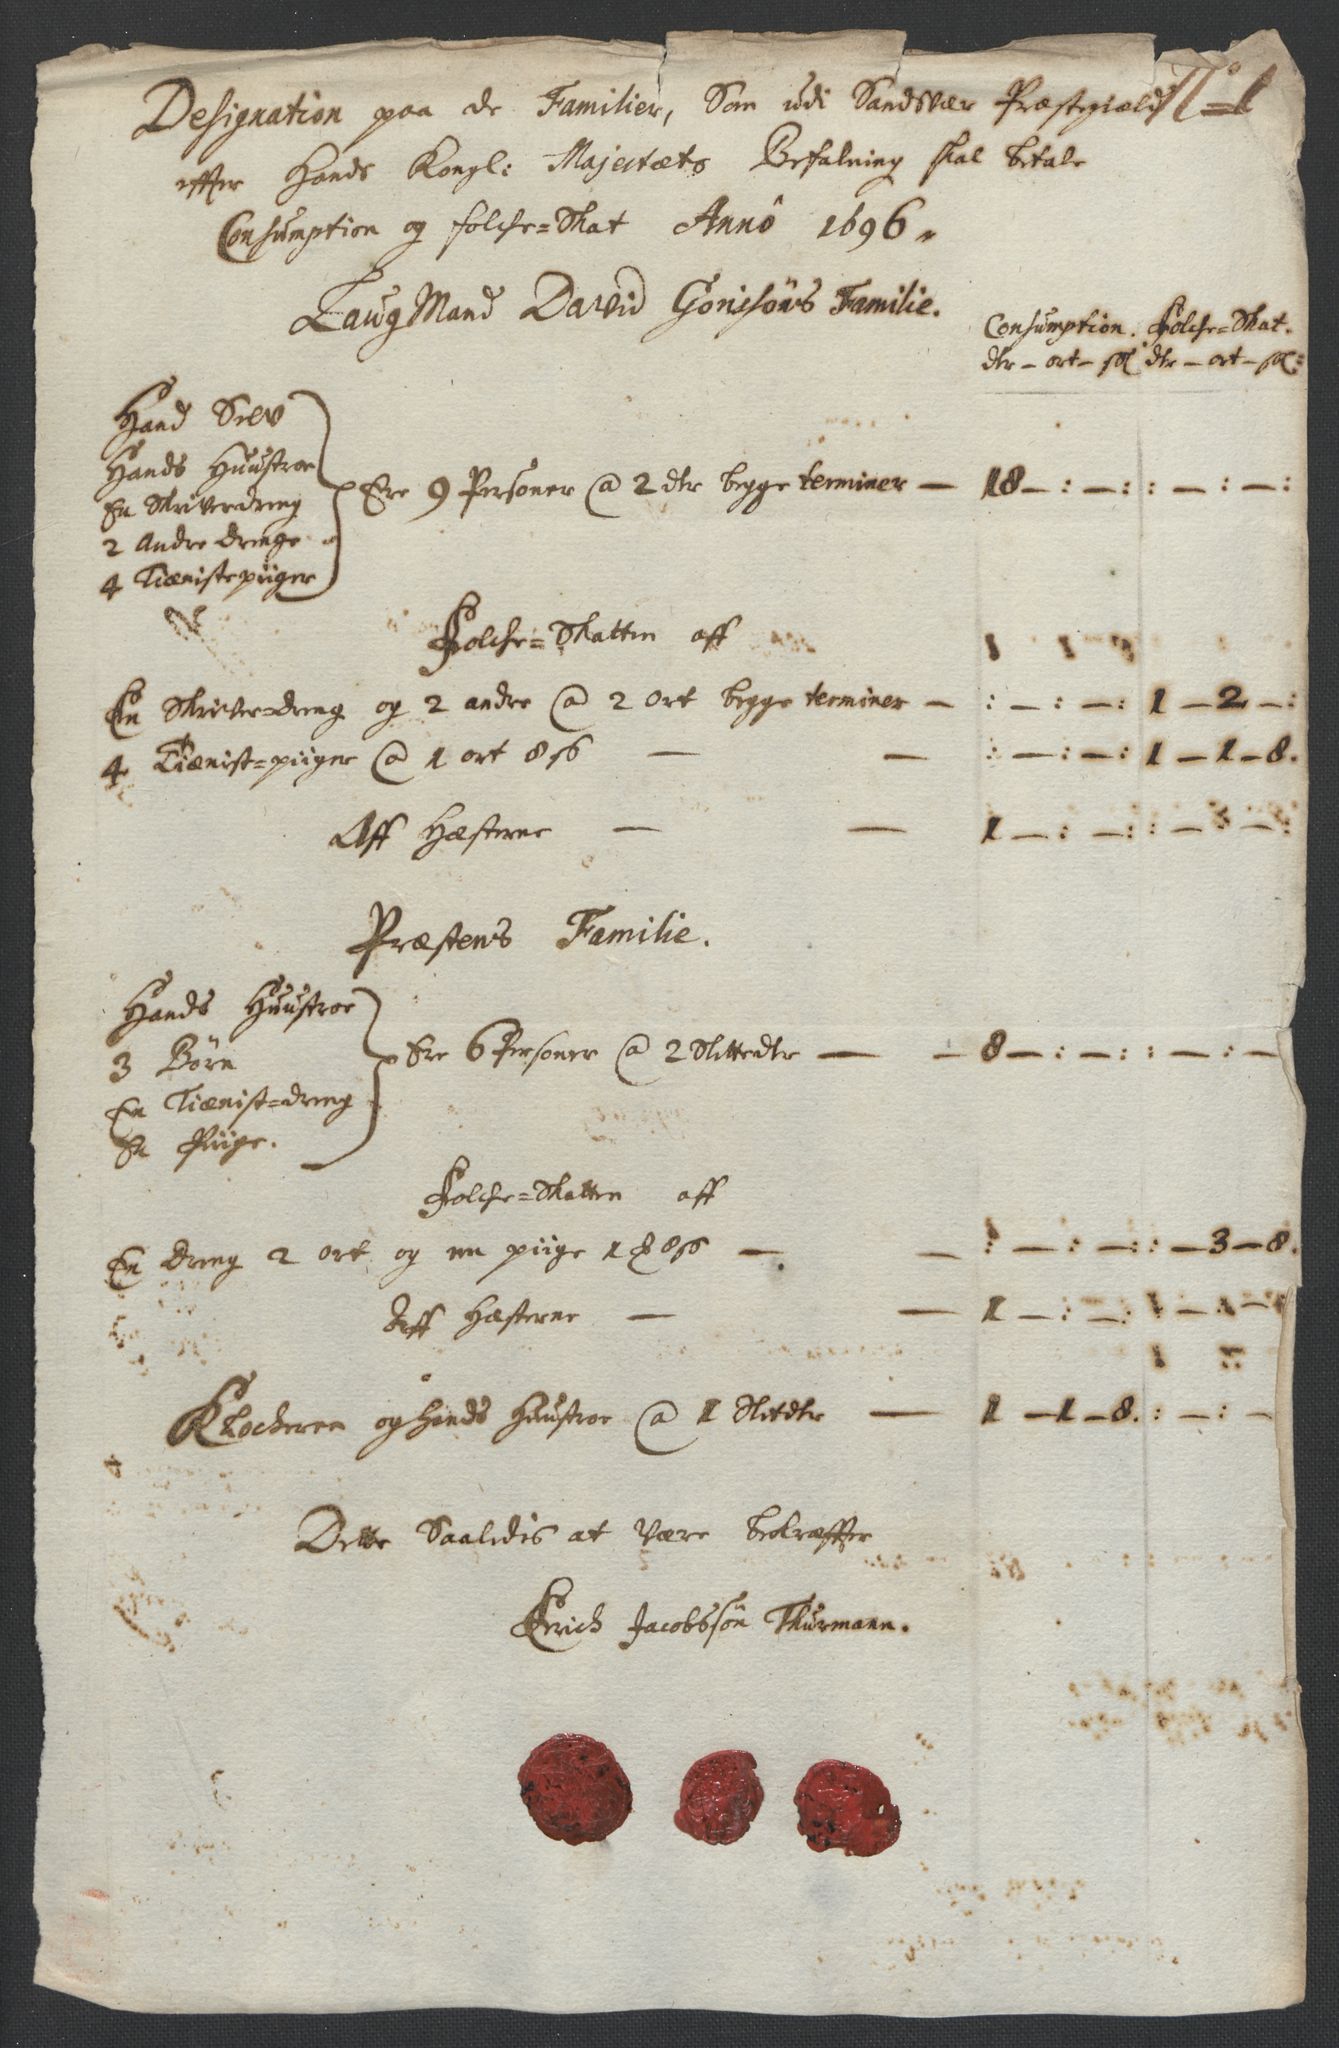 N: 1
Designation paa de Familier, Som udi Sandsvær Præstegield
effter Hands Kongl: Majestæts Befalning skal betale
Consumption og folche=Skat Anno 1696.
Laugmand David Gonsöns Familie.
Consumption. Folche=Skat.
dlr – ort – sk dlr – ort – sk:
Hand Selv
Hands Huustroe
En Skriverdreng
2 Andre drenge
4 Tiænistepiiger
Ere 9 Personer @ 2 dlr begge terminer — 18 – : – : : – : – :
Folche=Skatten aff
En Skriver=dreng og 2 andre @ 2 ort begge terminer — : – : – : 1 – 2 – :
4 Tiænist=piiger @ 1 ort 8 s — — : – : – : 1 – 1 – 8.
Aff Hæsterne — — 1 – : – : : – : – :
Præstens Familie.
Hands Huustroe
3 Börn
En Tiænist=dreng
En Piige.
Ere 6 Personer @ 2 Slettedlr — – 8 – : – : : – : –
Folche=Skatten aff
En dreng 2 ort og en piige 1 8 s — — : – : – : : – 3 – 8.
Aff Hæsterne — — 1 – : – :
Klocheren og Hands Huustroe @ 1 Sletdlr — 1 – 1 – 8. : – : –
Dette Saaledis at være bekræffter
Erich Jacobssön Thurmann.